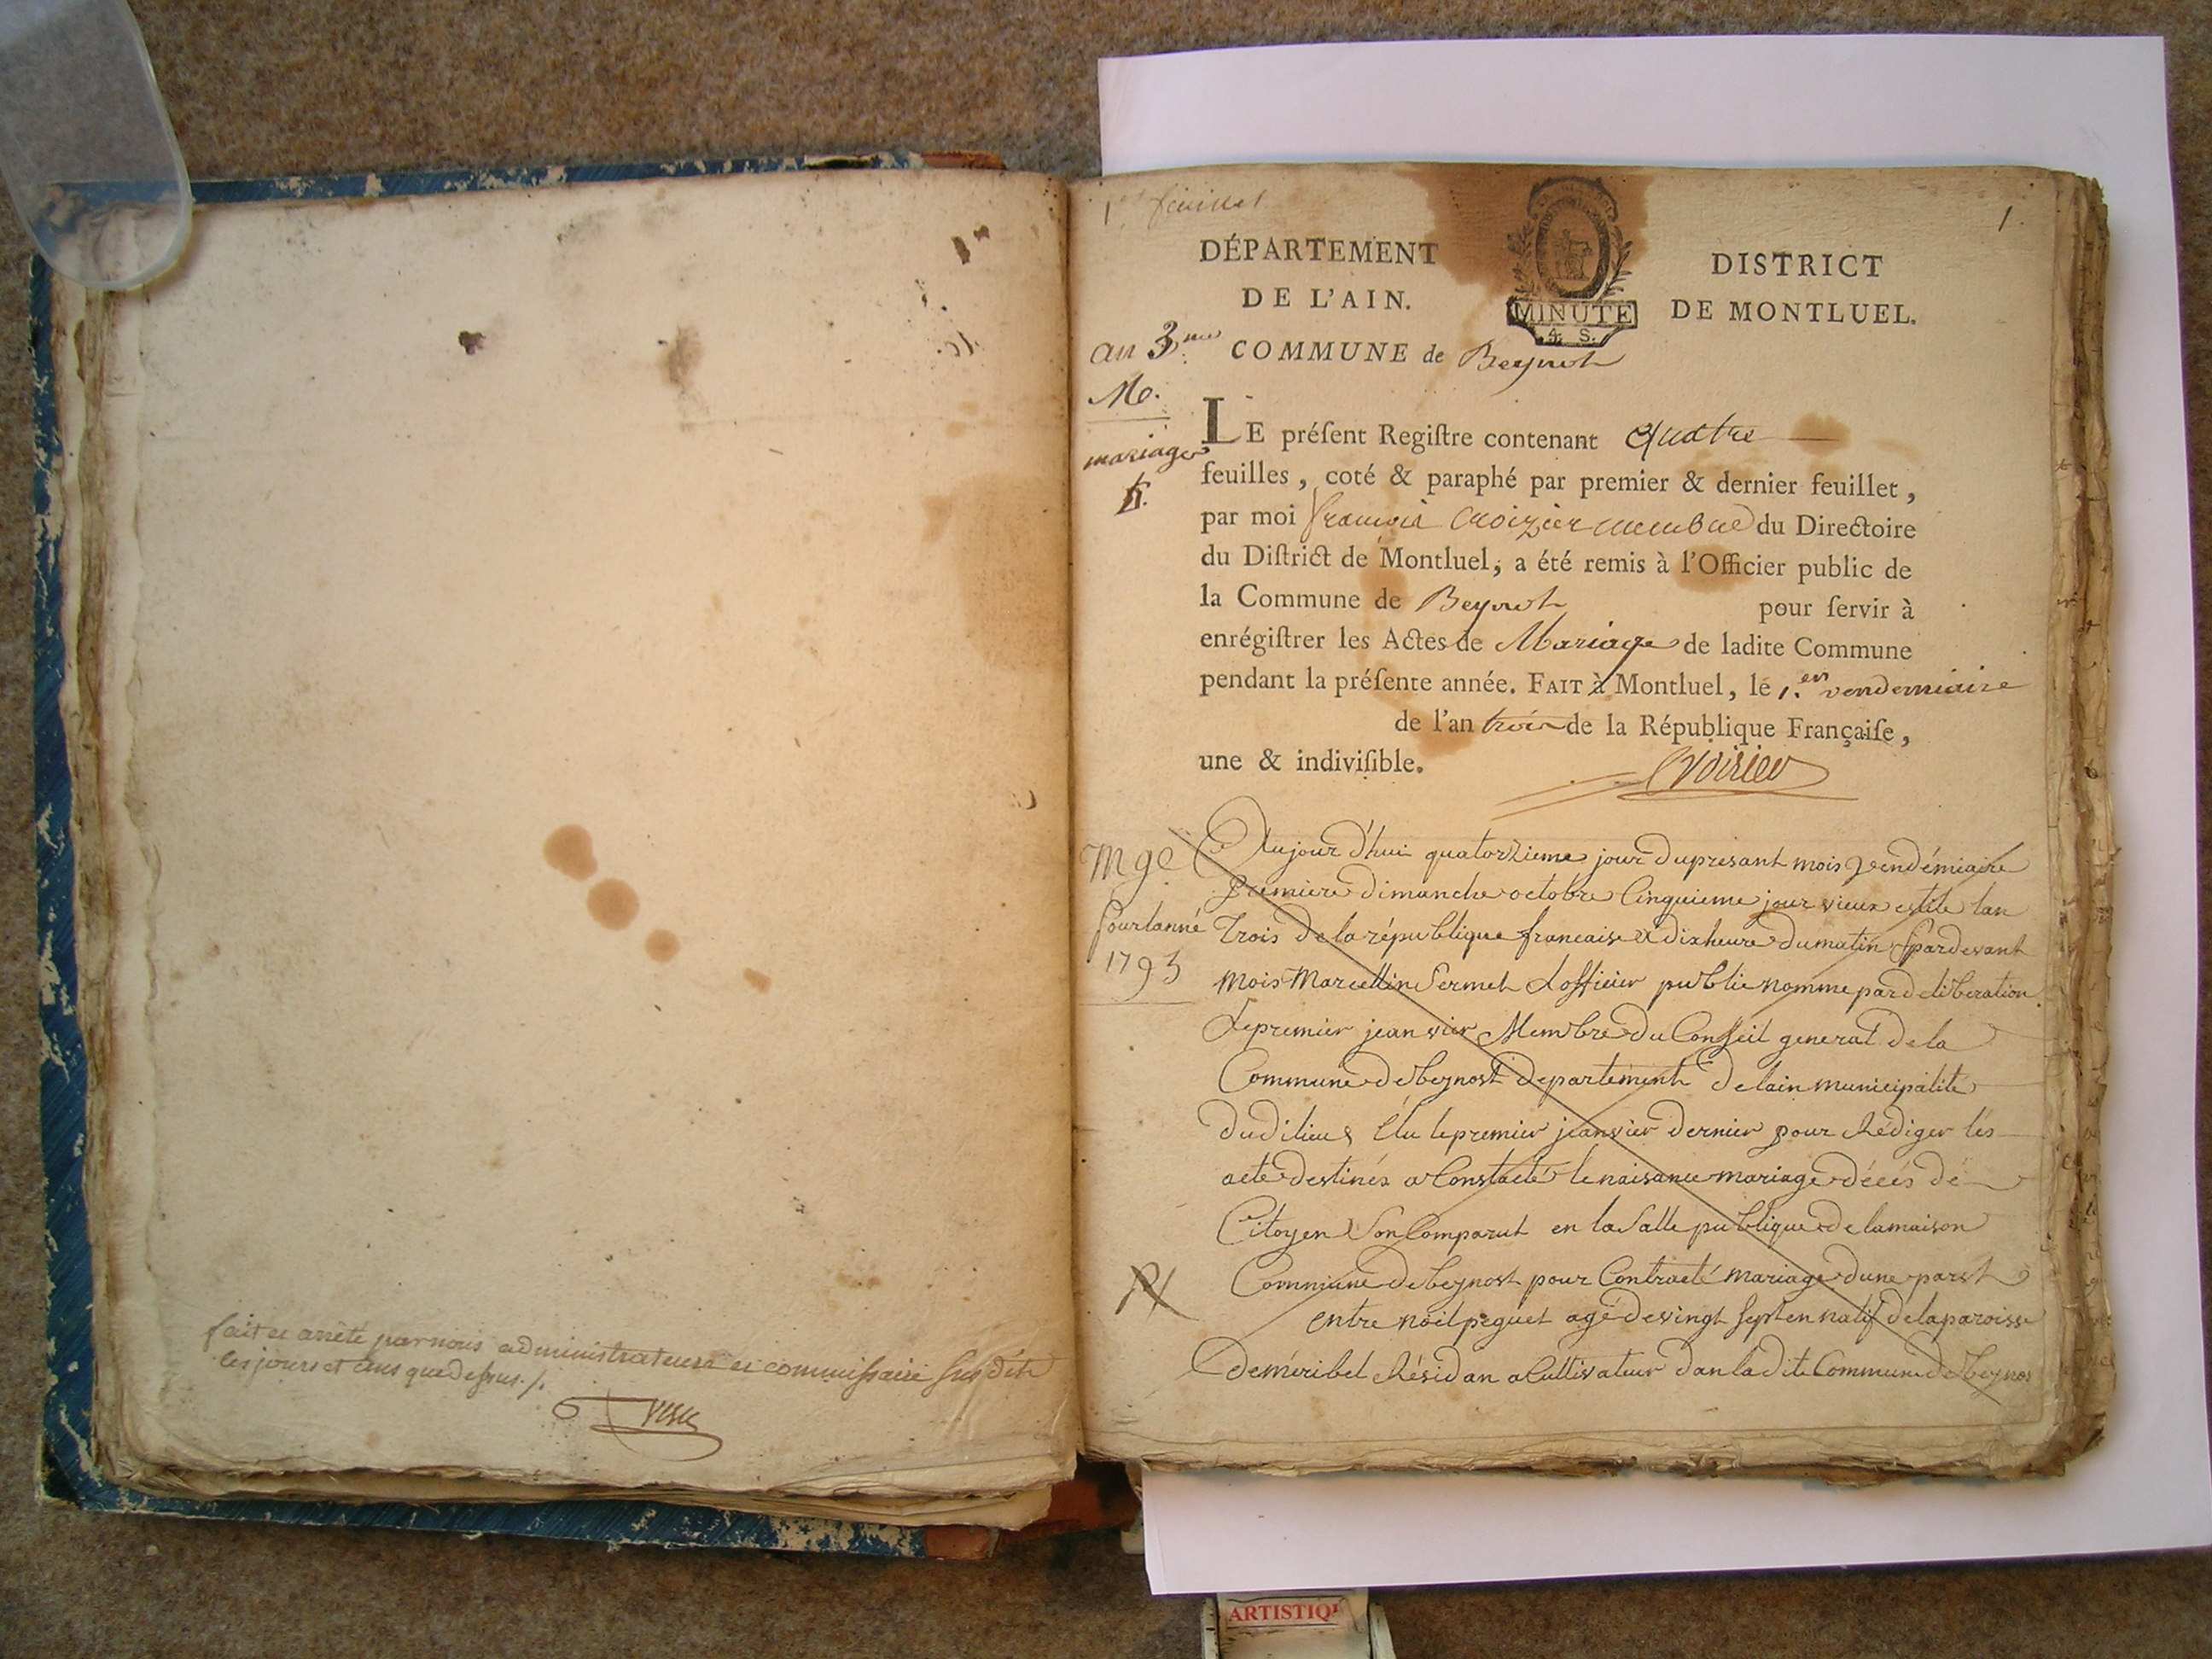 fait et arrêté par nous administrateurs et commissaire susdite
les jours et ans que dessus ./.
1er feuillet
1.
DÉPARTEMENT
DE L'AIN.
MINUTE
4. S.
DISTRICT
DE MONTLUEL.
an 3me
COMMUNE de Beynost
No.
mariages
LE préſent Regiſtre contenant quatre
feuilles, coté & paraphé par premier & dernier feuillet,
par moi françois Croizier membre du Directoire
du Diſtrict de Montluel, a été remis à l'Officier public de
la Commune de Beynost pour ſervir à
enrégiſtrer les Actes de Mariage de ladite Commune
pendant la préſente année. FAIT à Montluel, le 1.er vendemiaire
de l'an trois de la République Françaiſe,
une & indiviſible.
Croizier
mge
pour lanné
1793
Aujourd'hui quatorzieme jour du presant mois vendémiaire
premiere dimanche octobre Cinquieme jour vieux estile lan
trois de la république francaise a dix heure du matin pardevant
mois Marcellin Sermet Lofficier publie nomme par deliberation
Le premier jeanvier Membre du Conseil general de la
Commune de beynost departement de lain municipalite
dudi lieu Elu le premier jeanvier dernier pour Rédiger les
acte destinés a Constaté le naisance mariage décés dé
Citoyen Son Comparut en la Salle publique de la maison
Commune de beynost pour Contracté mariage dune parst
entre noël peguet agé de vingt sept en natif de la paroisse
de méribel Résidan a Cultivateur dan la dite Commune de beynos
ARTISTIQ